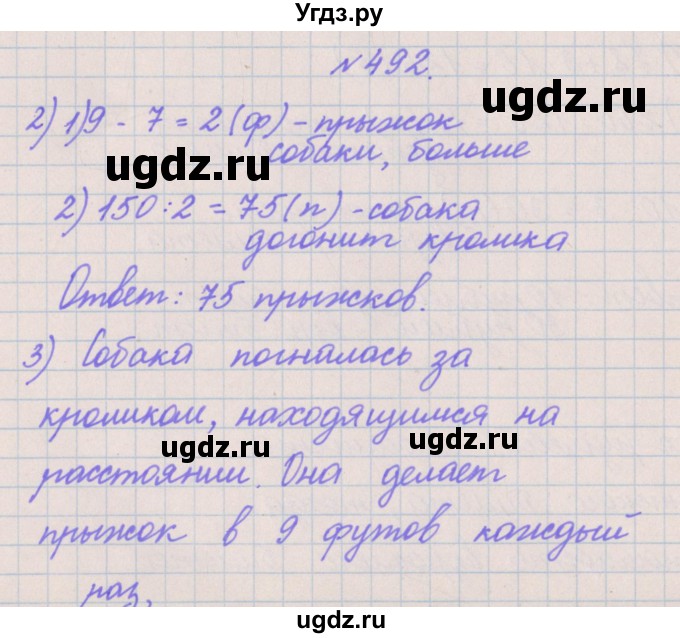 Угдз.ру
№492.
2) 1) 9 - 7 = 2 (ф) - прыжок
собаки, больше
ugdz.ru
ugdz.ru
2) 150 : 2 = 75 (п) - собака
догонит кролика
Ответ: 75 прыжков.
3) Собака погналась за
кроликом, находящимся на
ugdz.ru
ugdz.ru
расстоянии. Она делает
прыжок в 9 футов каждый
раз,
ugdz.ru
ugdz.ru
ugdz.ru